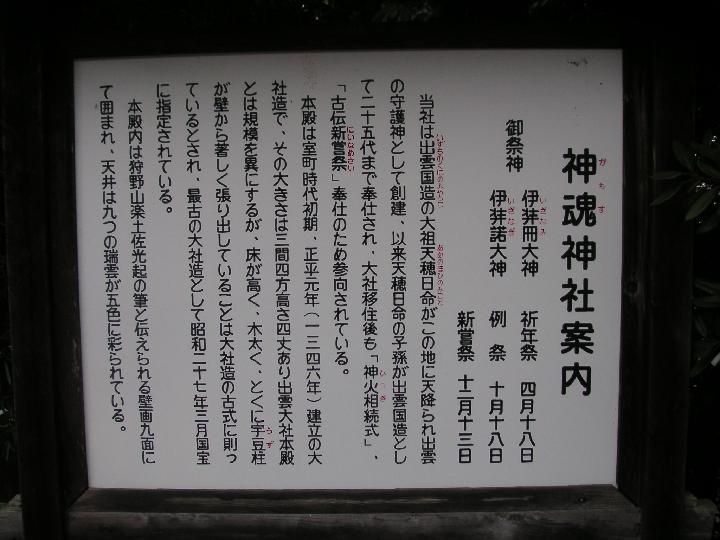 神魂神社案内
かもす
御祭神
伊弉冊大神 祈年祭 四月十八日
いざなみ
伊弉諾大神 例祭 十月十八日
いざなぎ
新嘗祭 十二月十三日
当社は出雲国造の大祖天穂日命がこの地に天降られ出雲
の守護神として創建、以来天穂日命の子孫が出雲国造とし
て二十五代まで奉仕され、大社移住後も「神火相続式」、
ひつぎ
「古伝新嘗祭」奉仕のため参向されている。
にいなめさい
本殿は室町時代初期、正平元年(一三四六年)建立の大
社造で、その大きさは三間四方高さ四丈あり出雲大社本殿
とは規模を異にするが、床が高く、木太く、とくに宇豆柱
うず
が壁から著しく張り出していることは大社造の古式に則っ
ているとされ、最古の大社造として昭和二十七年三月国宝
に指定されている。
本殿内は狩野山楽土佐光起の筆と伝えられる壁画九面に
て囲まれ、天井は九つの瑞雲が五色に彩られている。